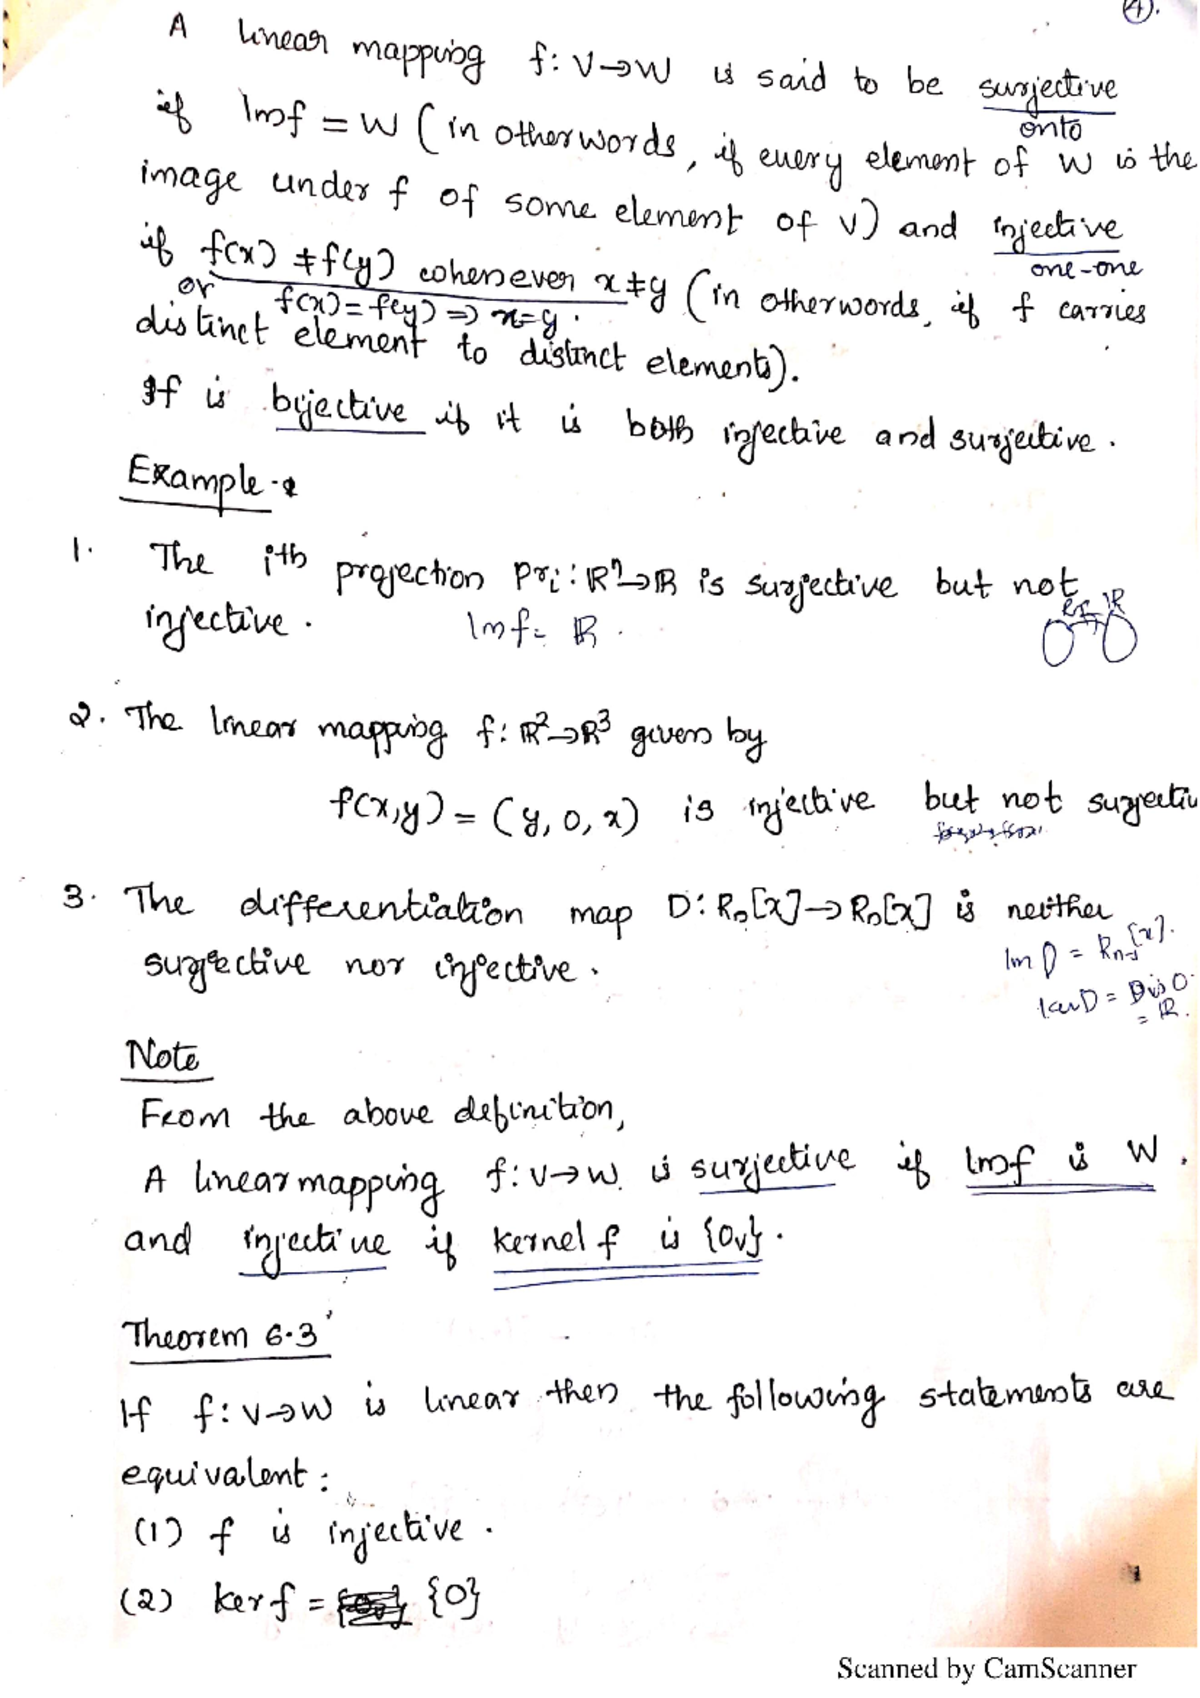 (4).
A linear mapping f: V→W is said to be surjective
onto
if Imf = W (in otherwords, if every element of W is the
image under f of some element of V) and injective
one-one
if f(x) ≠ f(y) whenever x≠y (in otherwords, if f carries
or f(x)=f(y) ⇒ x=y.
distinct element to distinct elements).
If is bijective if it is both injective and surjective.
Example -
1. The ith projection Pri: ℝⁿ→ℝ is surjective but not
injective. Imf = ℝ.
ℝ
2. The linear mapping f: ℝ²→ℝ³ given by
f(x,y) = (y, 0, x) is injective but not surjectiv
3. The differentiation map D: Rn[x]→Rn[x] is neither
surjective nor injective.
Im D = Rn-1[x].
kerD = D is 0.
= ℝ.
Note
From the above definition,
A linear mapping f: V→W is surjective if Imf is W.
and injective if kernel f is {0v}.
Theorem 6.3
If f: V→W is linear then the following statements are
equivalent:
(1) f is injective.
(2) ker f = {0}
Scanned by CamScanner